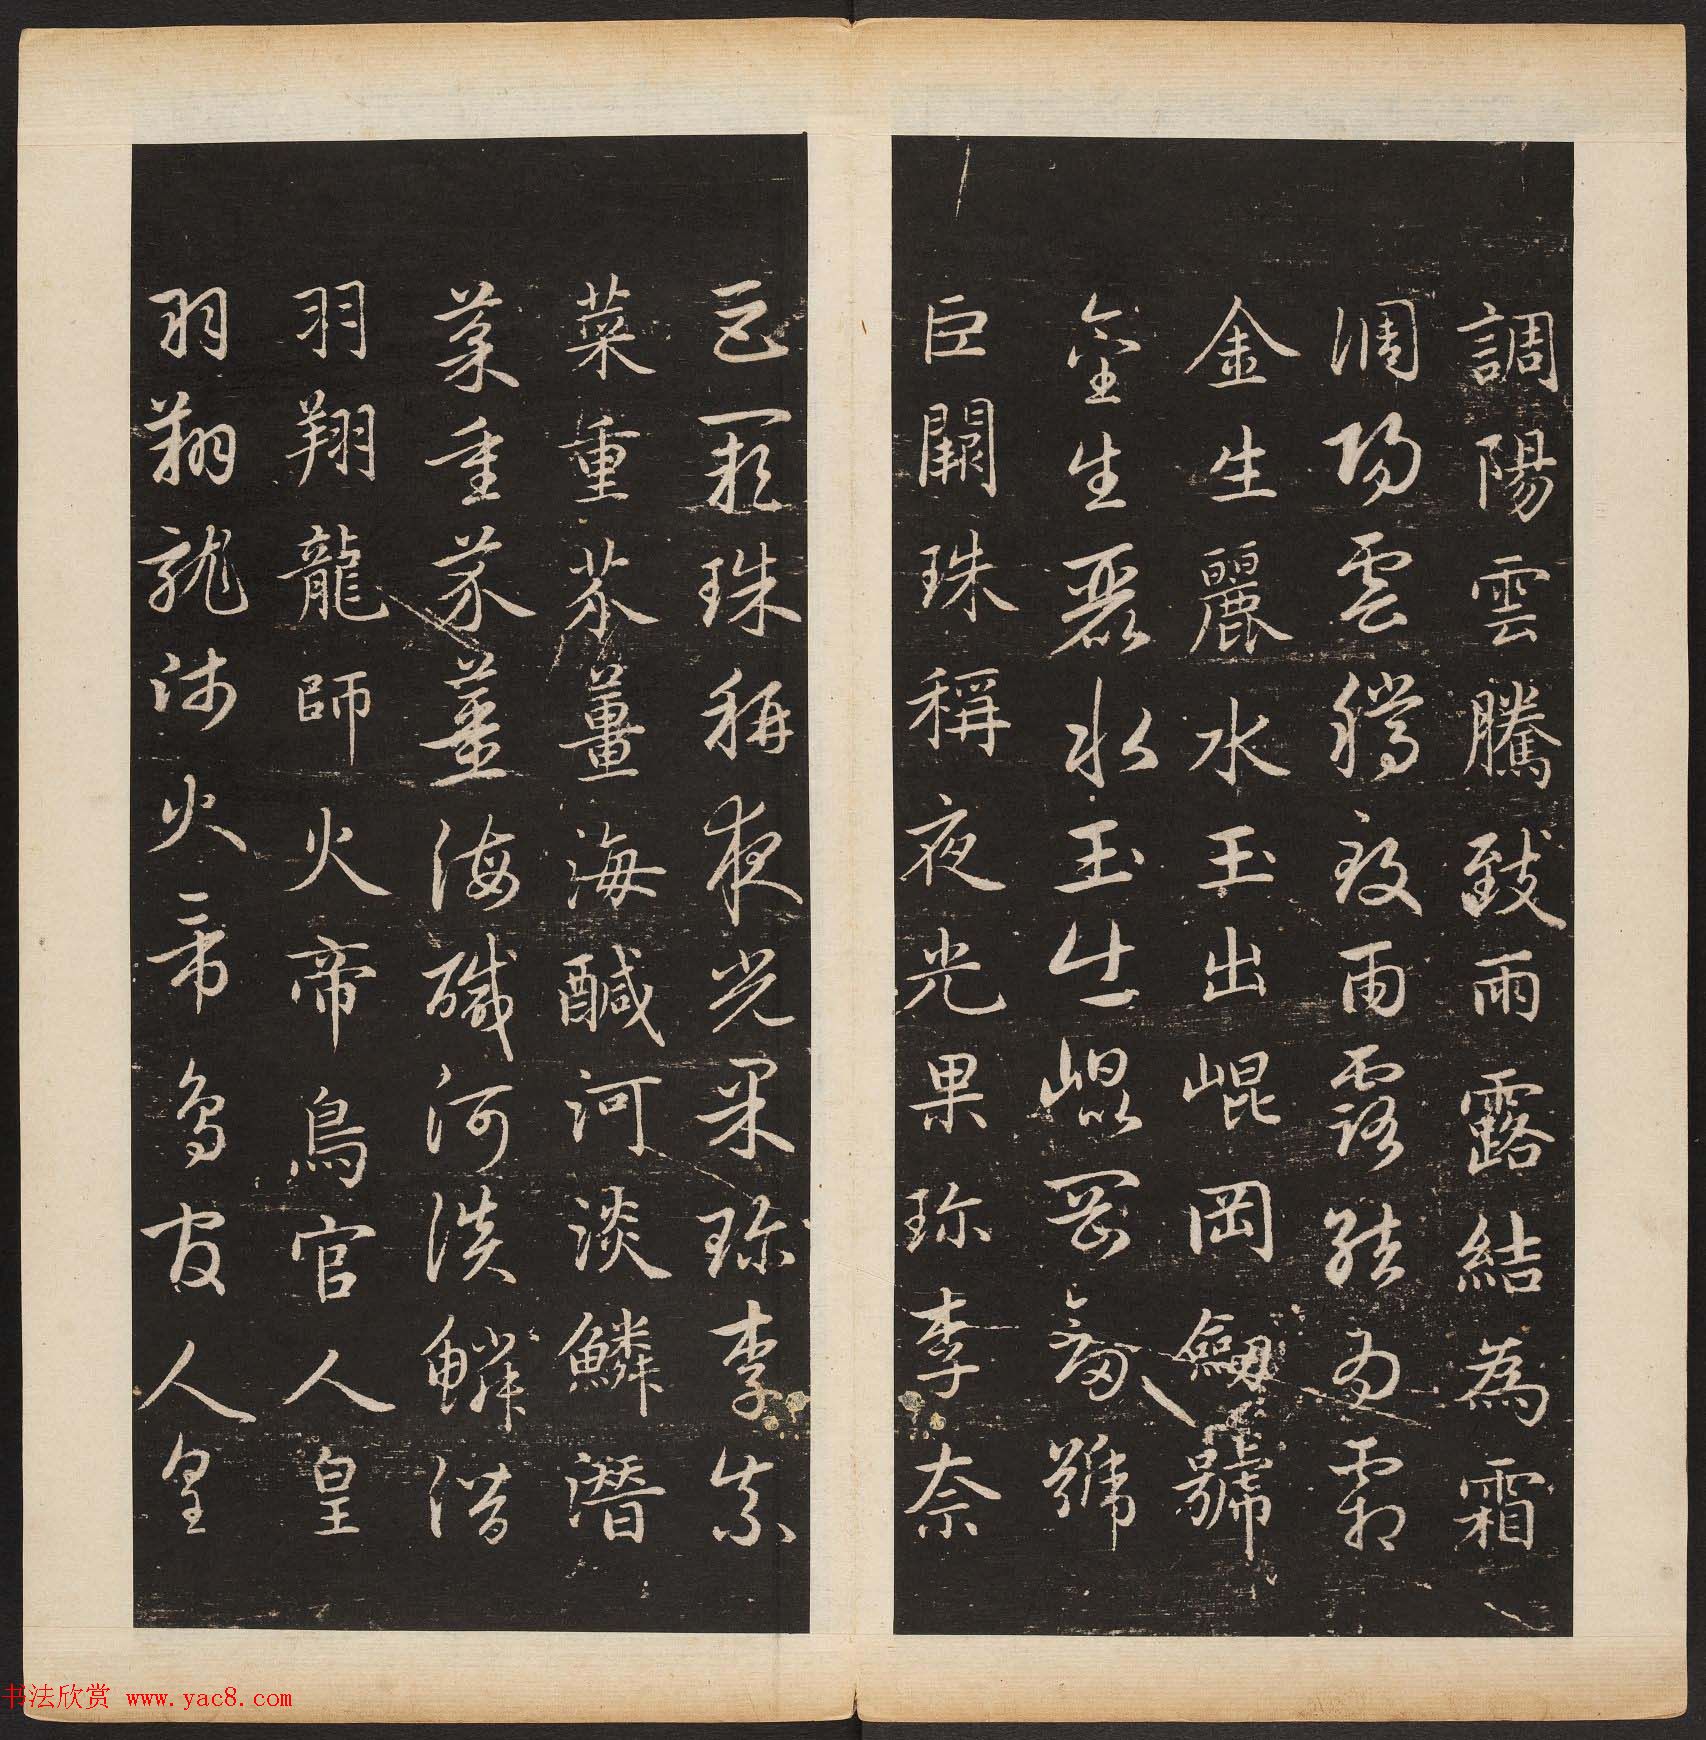 調陽雲騰致雨露結為霜
調陽雲騰致雨露結為霜
金生麗水玉出崐岡劔號
金生麗水玉出崐岡劔號
巨闕珠稱夜光果珎李奈
巨闕珠稱夜光果珎李柰
菜重芥薑海醎河淡鱗潛
菜重芥薑海醎河淡鱗潛
羽翔龍師火帝鳥官人皇
羽翔龍師火帝鳥官人皇
书法欣赏 www.yac8.com